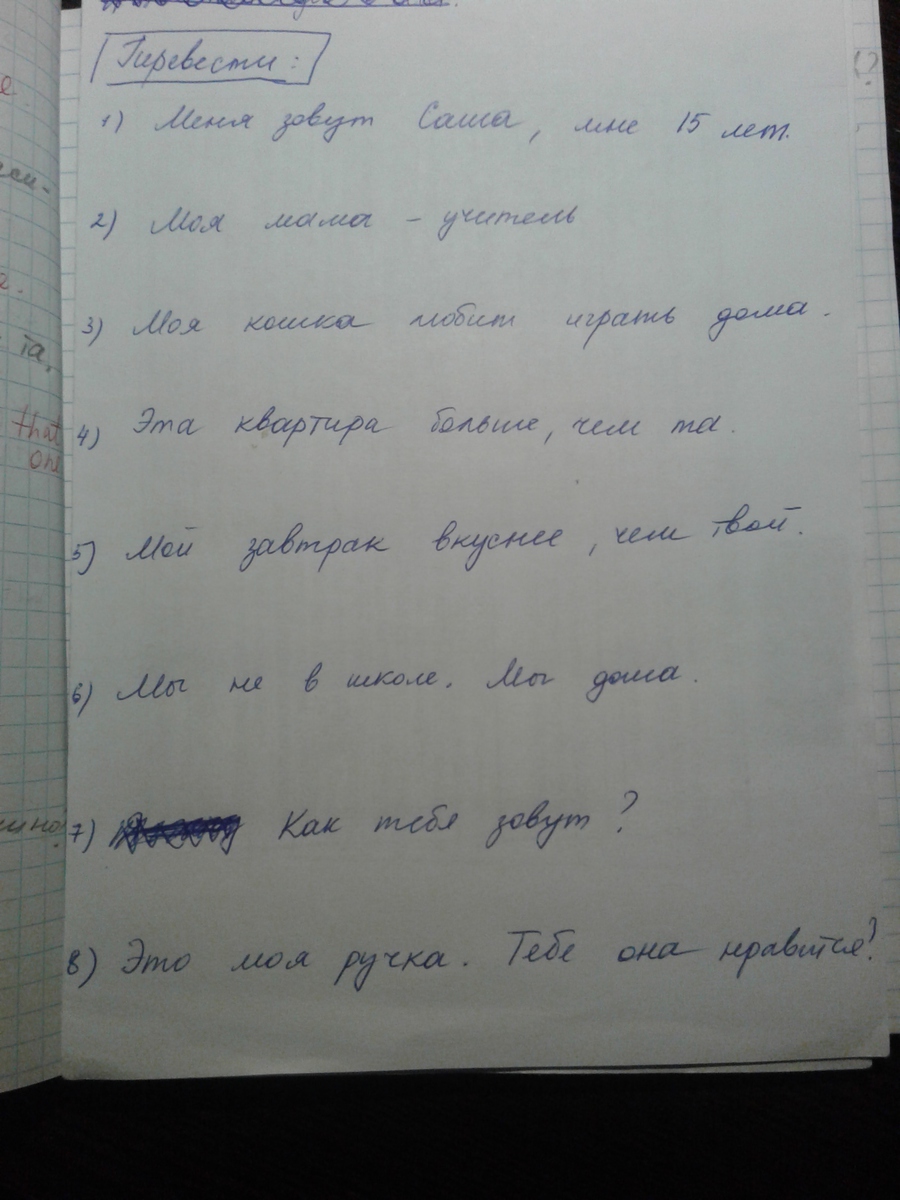 Перевести:
1) Меня зовут Саша, мне 15 лет.
2) Моя мама - учитель
3) Моя кошка любит играть дома.
та,
that
4) Эта квартира больше, чем та.
one
5) Мой завтрак вкуснее, чем твой.
6) Мы не в школе. Мы дома.
7) Как тебя зовут?
8) Это моя ручка. Тебе она нравится?